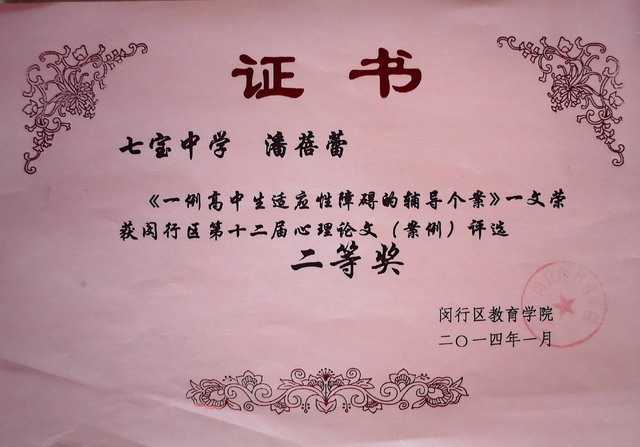 证书
七宝中学 潘蓓蕾
《一例高中生适应性障碍的辅导个案》一文荣
获闵行区第十二届心理论文（案例）评选
二等奖
闵行区教育学院
二〇一四年一月